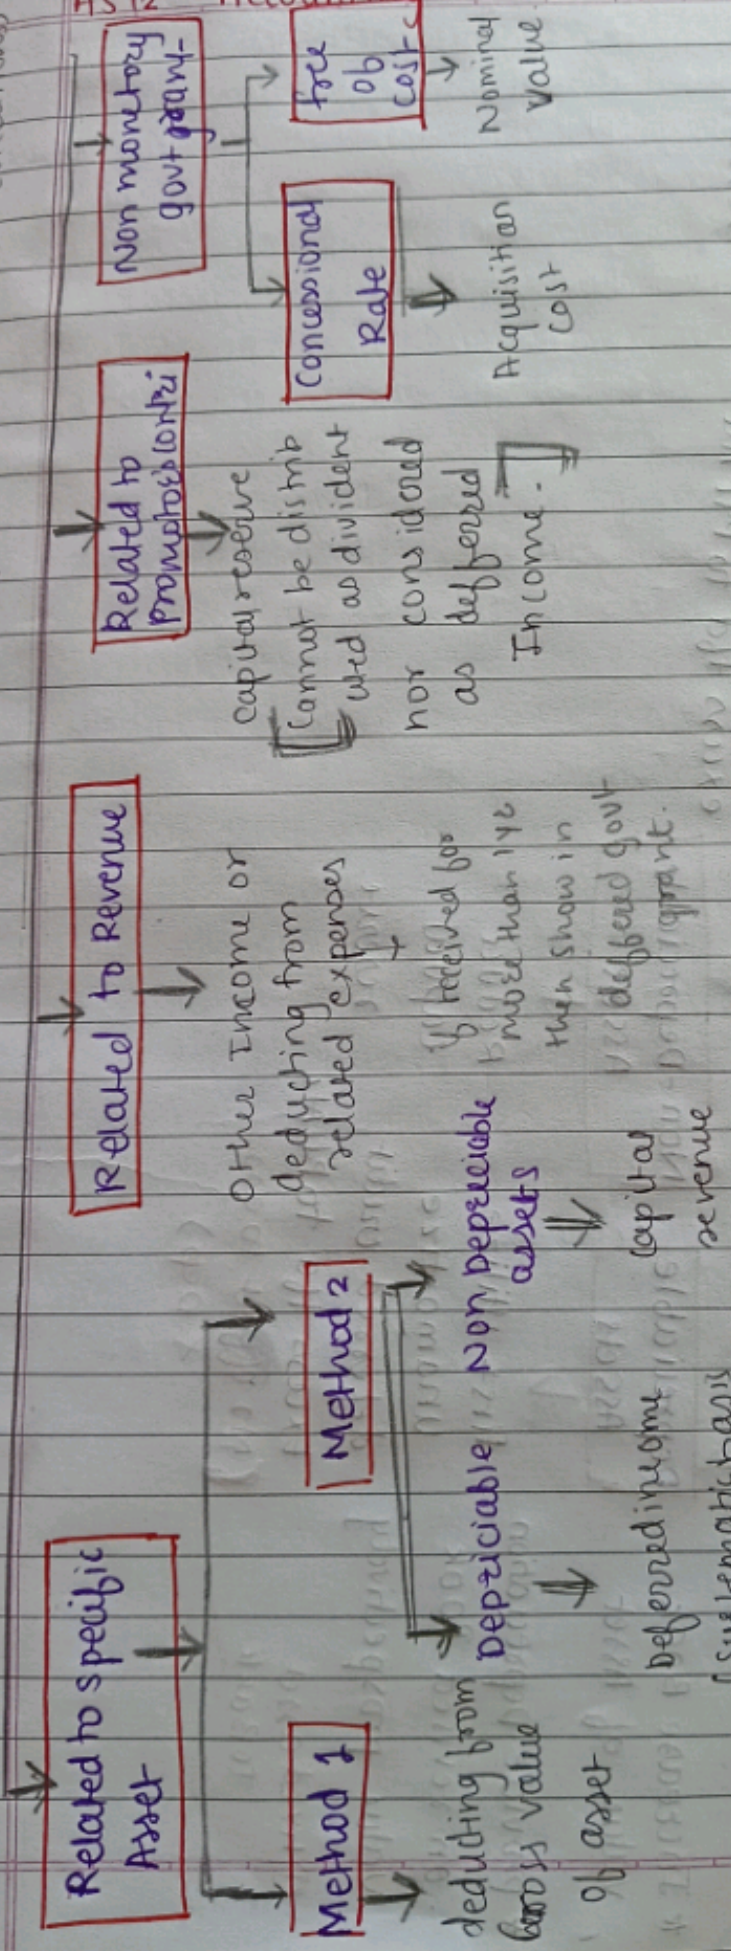 AS 12
Related to specific
Asset
Method 1
deducting from
Gross value
of asset
Method 2
Depriciable
Deferred income
(systematic basis
Non Depreciable
assets
capital
revenue
Related to Revenue
Other Income or
deducting from
related expenses
if received for
more than 1 yr
then show in
deffered govt
grant.
Related to
promotors contri
capital reserve
[Cannot be distrib
uted as divident
nor considored
as deffered
Income.]
Non monetory
govt grant
Concessional
Rate
Acquisition
cost
free
of
cost
Nominal
value